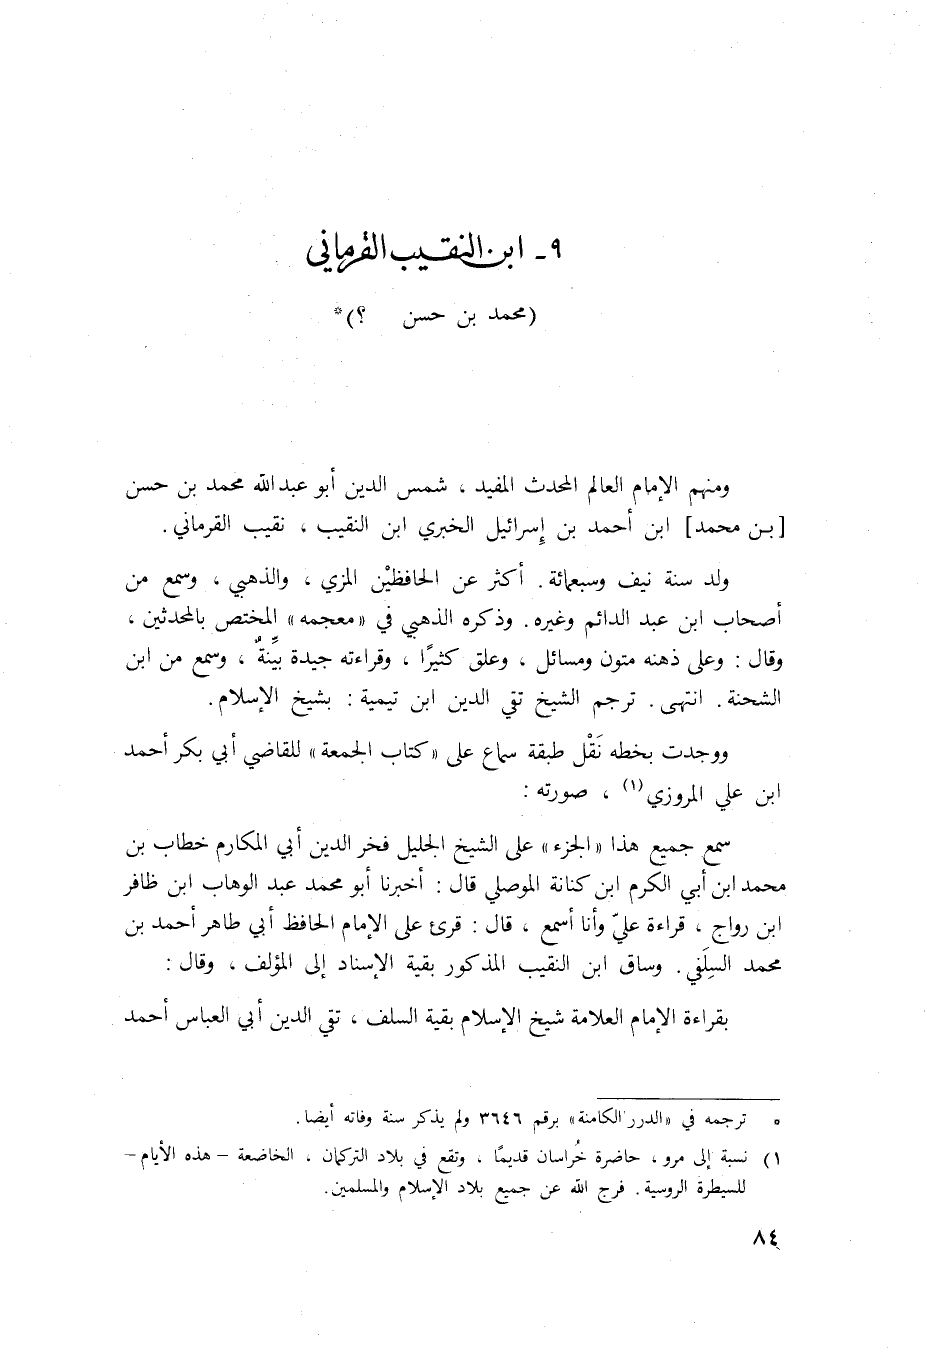 ٩- ابن النقيب القرماني
(محمد بن حسن ؟)*
ومنهم الإمام العالم المحدث المفيد ، شمس الدين أبو عبدالله محمد بن حسن
[بن محمد] ابن أحمد بن إِسرائيل الخبري ابن النقيب ، نقيب القرماني .
ولد سنة نيف وسبعمائة . أكثر عن الحافظيْن المزي ، والذهبي ، وسمع من
أصحاب ابن عبد الدائم وغيره . وذكره الذهبي في «معجمه» المختص بالمحدثين ،
وقال : وعلى ذهنه متون ومسائل ، وعلق كثيرًا ، وقراءته جيدة بيِّنةٌ ، وسمع من ابن
الشحنة . انتهى . ترجم الشيخ تقي الدين ابن تيمية : بشيخ الإسلام .
ووجدت بخطه نَقْل طبقة سماع على «كتاب الجمعة» للقاضي أبي بكر أحمد
ابن علي المروزي(١) ، صورته :
سمع جميع هذا «الجزء» على الشيخ الجليل فخر الدين أبي المكارم خطاب بن
محمد ابن أبي الكرم ابن كنانة الموصلي قال : أخبرنا أبو محمد عبد الوهاب ابن ظافر
ابن رواج ، قراءة عليّ وأنا أسمع ، قال : قرئ على الإمام الحافظ أبي طاهر أحمد بن
محمد السِلَفي . وساق ابن النقيب المذكور بقية الإسناد إلى المؤلف ، وقال :
بقراءة الإمام العلامة شيخ الإسلام بقية السلف ، تقي الدين أبي العباس أحمد
* ترجمه في «الدرر الكامنة» برقم ٣٦٤٦ ولم يذكر سنة وفاته أيضا .
١) نسبة إلى مرو ، حاضرة خُراسان قديمًا ، وتقع في بلاد التركمان ، الخاضعة - هذه الأيام -
للسيطرة الروسية . فرج الله عن جميع بلاد الإسلام والمسلمين .
٨٤